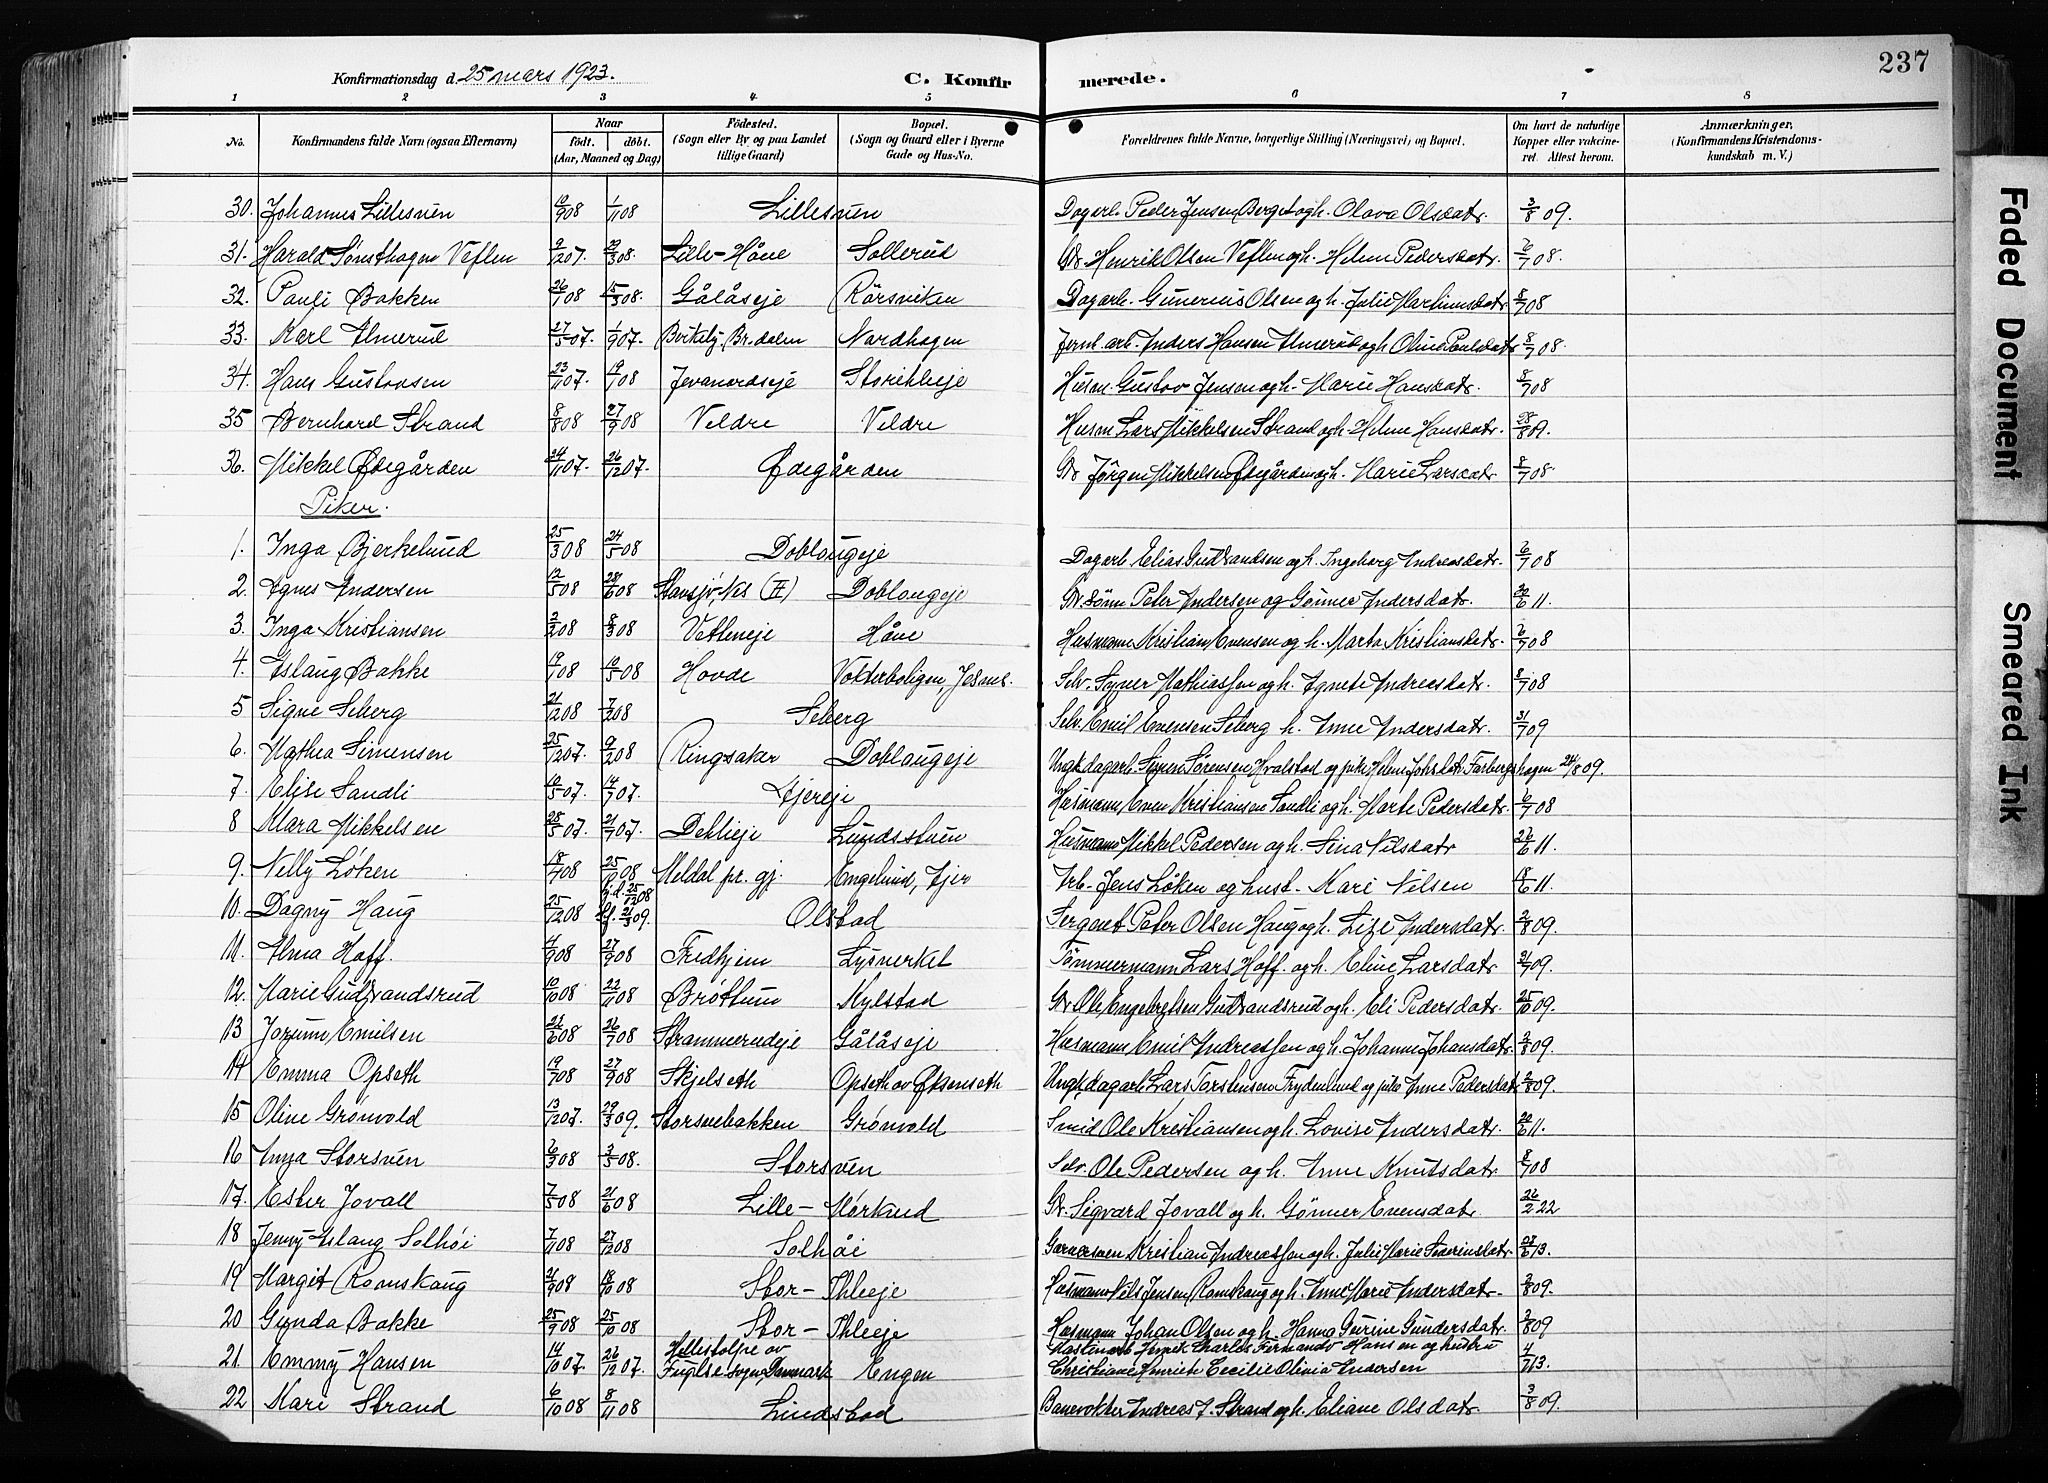 237
Konfirmationsdag d. 25 mars 1923. C. Konfirmerede.
1 2 3 4. 5 6 7 8.
No. Konfirmandens fulde Navn (ogsaa Efternavn) Naar født. døbt. (Aar, Maaned og Dag) Fødested. (Sogn eller By og paa Landet tillige Gaard) Bopæl. (Sogn og Gaard eller i Byerne Gade og Hus-No. Forældrenes fulde Navne, borgerlige Stilling (Næringsvei) og Bopæl. Om havt de naturlige Kopper eller vaccineret. Attest herom. Anmærkninger. (Konfirmandens Kristendomskundskab m. V.)
30. Johannes Lillesven 10/9 08 1/11 08 Lillesven Dagarb. Peder Jensen Berget og h. Olava Olsdatr. 3/8 09.
31. Harald Tønsthagen Veflen 9/12 07. 29/3 08. Lille-Håve Sollerud Gbr. Henrik Olsen Veflen og h. Helene Pedersdatr. 6/7 08.
32. Pauli Bakken 26/1 08 15/3 08. Gålåseje Rørsviken Dagarb. Gunerius Olsen og h. Julie Martinusdatr 8/7 08
33. Karl Almerud 27/5 07. 1/9 07. Birkely, Br.dalen Nordhagen Jernb.arb. Anders Hansen Almerud og h. Oline Paulsdatr 8/7 08.
34. Hans Gustavsen 23/11 07. 19/1 08 Jevanordseje Storihleje Husm. Gustav Jensen og h. Marie Hansdatr. 8/7 08
35 Bernhard Strand 8/8 08 27/9 08 Veldre Veldre Husm Lars Mikkelsen Strand og h. Helene Hansdatr. 28/8 09.
36. Mikkel Ødegården 24/11 07. 26/12 07. Ødegården Gbr Jörgen Mikkelsen Ødegården og h. Marie Larsdatr 8/7 08.
Piker.
1. Inga Bjerkelund 25/3 08 24/5 08 Doblougeje Dagarb. Elias Gudbrandsen og h. Ingeborg Andreasdatr. 6/7 08
2. Agnes Andersen 12/5 08 28/6 08 Stansjö, Nes (H) Doblougeje Gbr.sönn Peter Andersen og Gönner Andersdatr. 20/6 11.
3. Inga Kristiansen 2/2 08 8/3 08 Vetteneje Håve Husmann Kristian Evensen og h. Marta Kristiansdatr. 6/7 08
4. Aslaug Bakke 19/1 08 10/5 08 Hovde Vokterboligen, Jesnes. Selv. Syver Mathiassen og h. Agnete Andreasdatr. 8/7 08
5 Signe Seberg 21/12 08 7/2 08 Seberg Selv. Emil Evensen Seberg h. Anne Andersdatr. 31/7 09
6. Mathea Simensen 25/12 07. 9/2 08 Ringsaker Doblougeje Ungk.dagarb. Simen Sørensen Hvalstad og pike Helene Johsdatr. Farbergshagen 24/8 09.
7. Elise Sandli 10/5 07. 14/7 07. Tjereje Husmann Even Kristiansen Sandli og h. Marte Pedersdatr. 6/7 08
8 Klara Mikkelsen 28/5 07. 21/7 07. Dehlieje Lundsstuen Husmann Mikkel Pedersen og h. Sina Nilsdatr 27/6 11.
9. Nelly Løken 18/7 08 25/10 08 Meldal pr. gj. Engelund, Tjer Arb. Jens Løken og hust. Kari Nilsen 18/6 11.
10. Dagny Haug 25/12 08 hj.d. 25/12 08 st.f. 21/3 09. Olstad Sergent Peter Olsen Haug og h. Lise Andersdatr 2/8 09.
11. Alma Hoff. 4/9 08 27/9 08 Fredhjem Lysverket Tömmermann Lars Hoff. og h. Eline Larsdatr 21/7 09.
12. Marie Gudbrandsrud 10/10 08 22/11 08 Brøttum Kylstad Gbr Ole Engebretsen Gudbrandsrud og h. Eli Pedersdatr. 25/10 09.
13 Jorunn Emilsen 21/6 08 26/7 08 Strammerudeje Gålåseje Husmann Emil Andreassen og h. Johanne Johansdatr. 2/8 09.
14 Emma Opseth 19/7 08 27/9 08 Skjelseth Opseth av Øksenseth Ungk.dagarb. Lars Torstensen Frydenlund og pike Anne Pedersdatr. 2/8 09.
15 Oline Grönvold 13/12 07. 29/3 09. Storsvebakken Grönvold Smid Ole Kristiansen og h. Lovise Andersdatr. 20/6 11.
16 Anna Storsven 6/3 08 3/5 08. Storsven Selv. Ole Pedersen og h. Anne Knutsdatr. 8/7 08
17. Ester Jovall 7/5 08 21/6 08 Lille-Mörkved Gbr. Sigvard Jovall og h. Gönner Evensdatr. 26/2 22
18 Jenny Aslaug Solhöi 7/11 08 27/12 08 Solhöi Garversven Kristian Andreassen og h. Julie Marie Severinsdatr. 27/6 13.
19 Margit Romskaug 21/9 08 18/10 08 Stor-Ihleeje Husmann Nils Jensen Romskaug og h. Anne Marie Andersdatr. 2/8 09.
20 Gunda Bakke 25/9 08 25/10 08 Stor-Ihleeje Husmann Johan Olsen og h. Hanna Gurine Gundersdatr. 2/8 09
21. Emmy Hansen 14/10 07. 26/12 07. Hellestolpe av Fuglse sogn, Danmark Engen Charles Fernando Hansen og hustru Christiane Henriete Cecilie Olivia Andersen 4/7 13.
22 Kari Strand 6/10 08 8/11 08 Lindstad Banevokter Andreas J. Strand og h. Eliane Olsdatr. 3/8 09.
Faded Document
Smeared Ink